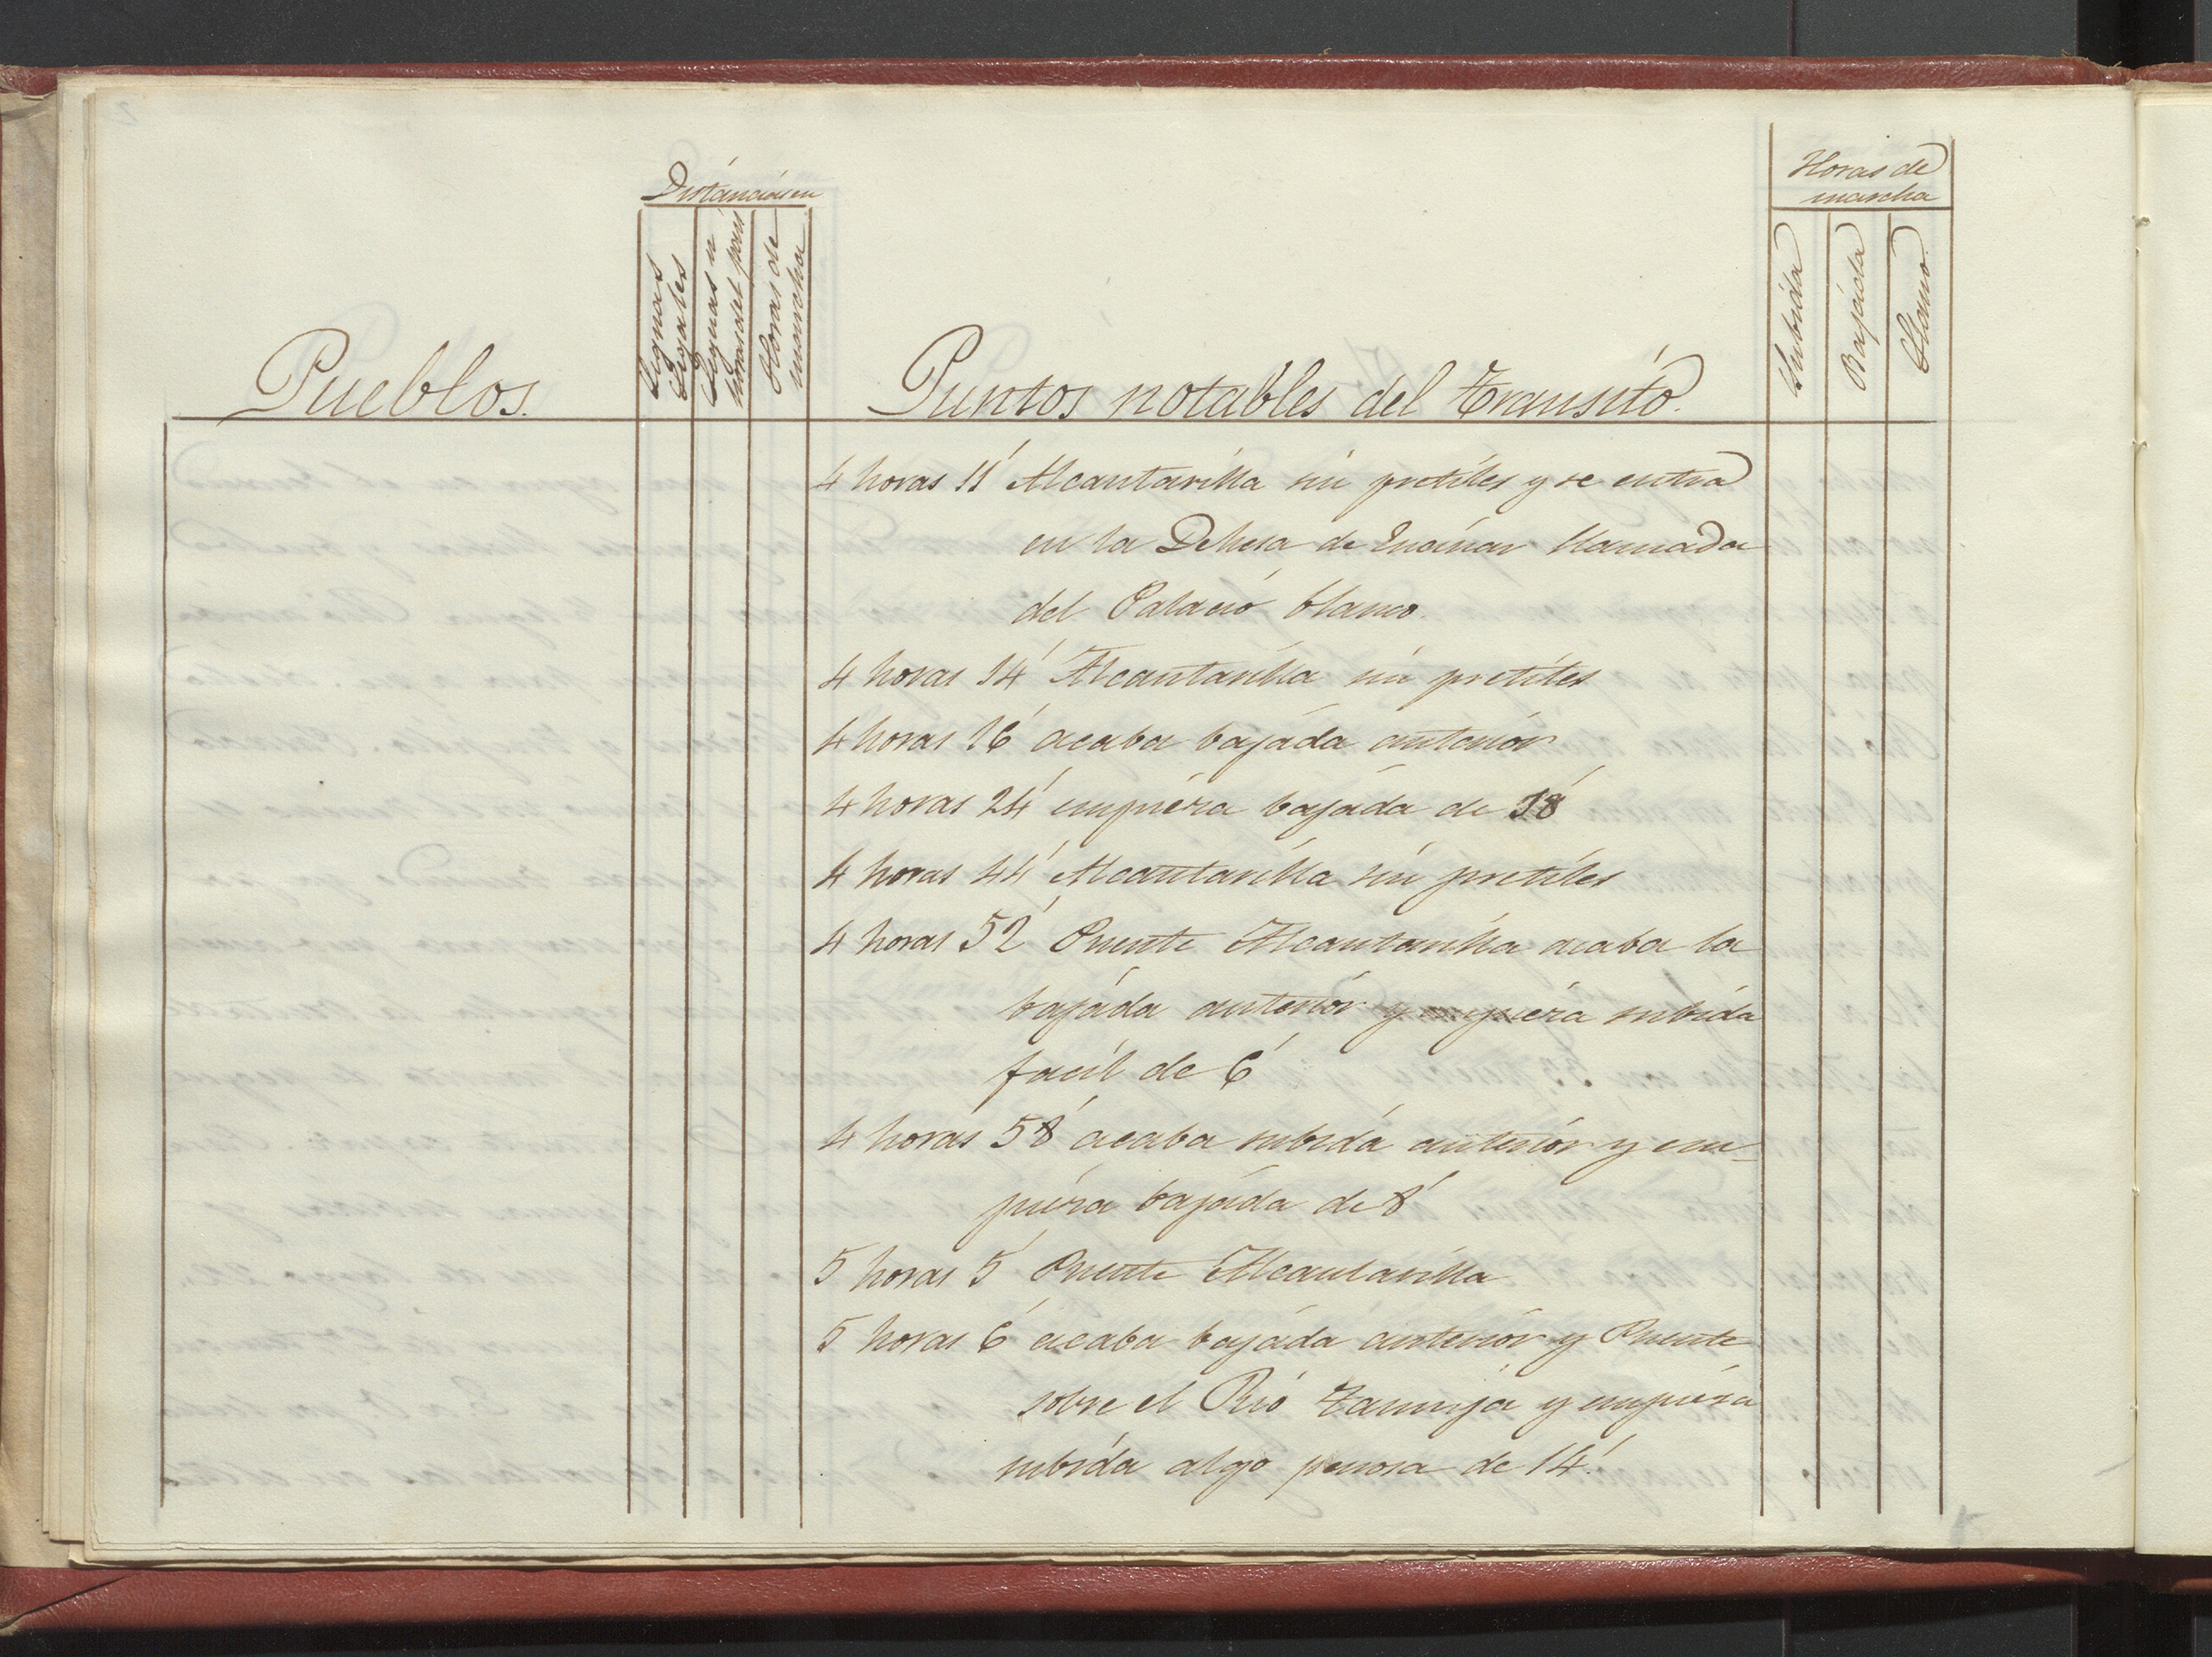 Distancias en
Leguas
legales
Leguas u
horas del pais
Horas de
marcha
Horas de
marcha
Subida
Bajada
Llano
Pueblos.
Puntos notables del tránsito.
4 horas 11' Alcantarilla sin pretiles y se entra
en la Dehesa de llamada
del Palacio blanco.
4 horas 14' Alcantarilla sin pretiles
4 horas 16' acaba bajada anterior
4 horas 24' empiéza bajada de 18'
4 horas 44' Alcantarilla sin pretiles
4 horas 52' Puente Alcantarilla acaba la
bajada anterior y empiéza subida
facil de 6'
4 horas 58' acaba subida anterior y em-
piéza bajada de 8'
5 horas 5' Puente Alcantarilla
5 horas 6' acaba bajada anterior y Puente
sobre el Rio Tamuja y empiéza
subida algo penosa de 14'.